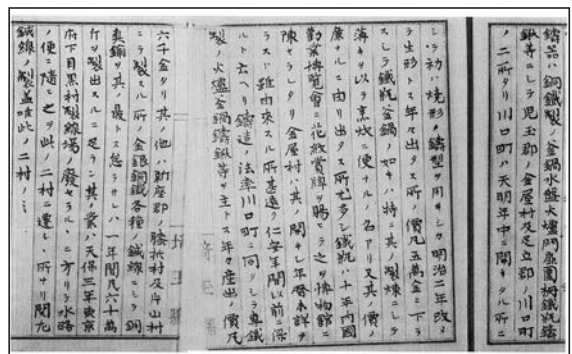 鑄器ハ銅鐵製ノ釜鍋水盤火爐門扉圍柵鐵瓶鑄
鍬等ニシテ児玉郡ノ金屋村及足立郡ノ川口町
ノ二所タリ川口町ハ天明年中ニ開キタル所ニ
シテ初ハ燒形ノ鑄型ヲ用キシカ明治二年改メ
テ生形トス年々出タス所ノ價凡五萬金ニ下ラ
スシテ鐵瓶釜鍋ノ如キハ特ニ其ノ製煉ニシテ
薄キヲ以テ烹炊ニ便ナルノ名アリ又其ノ價ノ
廉ナルニ由リ出タス所尤多シ鐵瓶ハ十年内國
勸業博覽會ニ花紋賞牌ヲ賜ヒテ之ヲ博物館ニ
陳セラレタリ金屋村ハ其ノ開キシ年暦未詳ナ
ラスト雖由來スル所甚遠ク仁安年間以前ニ係
ルト云ヘリ鑄造ノ法率川口町ニ同シクシテ專鐵
製ノ火爐釜鍋鑄鍬等ヲ主トス年々産出ノ價凡
六千金タリ其ノ他ハ新座郡ノ膝折村及片山村
ニテ製スル所ノ金銀銅鐵各種ノ鍼線ニシテ銅
眞鍮ヲ其ノ最トス怠ラサレハ一年間凡六十萬
斤ヲ製出スルニ足ラン其ノ業ハ天保三年東京
府下目黒村製線場ノ廢セラルヽニ方リテ水路
ノ便ニ隨ヒ之ヲ此ノ二村ニ遷シヽ所ナリ關九
鍼線ノ製蓋唯此ノ二村ノミ
埼玉縣